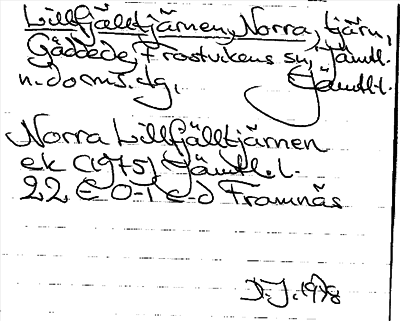 Lillfjälltjärnen, Norra, tjärn,
Gäddede, Frostvikens sn, Jämtl.
n. doms. dg, Jämtl.l.
Norra Lillfjälltjärnen
ek (1975) Jämtl. l.
22 E 0-1 c-d Framnäs
D.J. 1978